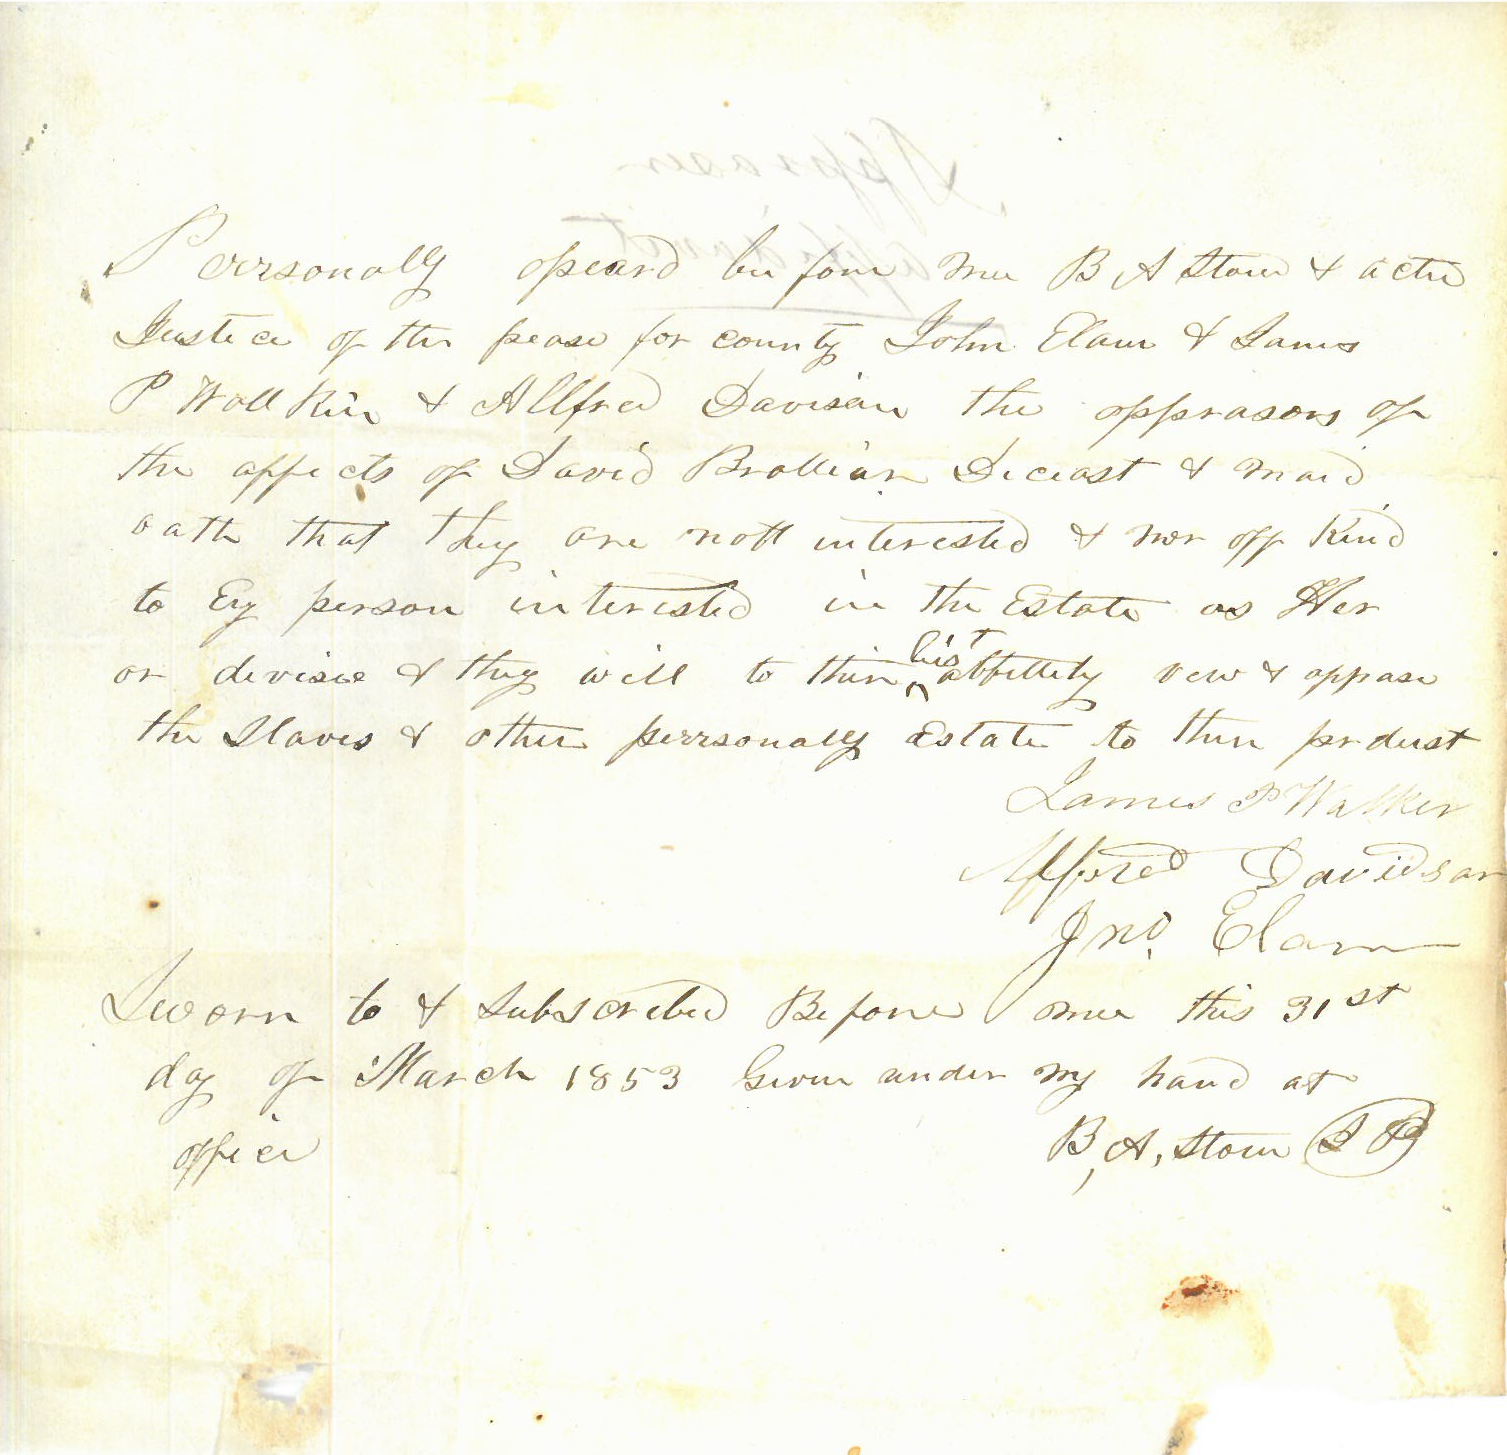 Appraser
affidavit
Perrsonally opeard be fore mee B A Stow & acted
Justice of the pease for county John Elam & James
P Wallker & Allfred Davison the apprasors of
the affects of David Brollier Deceast & maid
oath that they are nott interested & nor off Kind
to Eny person interested in the Estate as Her
or devisie & they will to thire
best
abbillety vew & appase
the Slaves & other perrsonally Estate to thire produst
James P Walker
Alfored Davidson
Jno. Elam
Sworn to & Subscribed Before mee this 31st
day of March 1853 Given under my hand at
office B. A. Stow J P